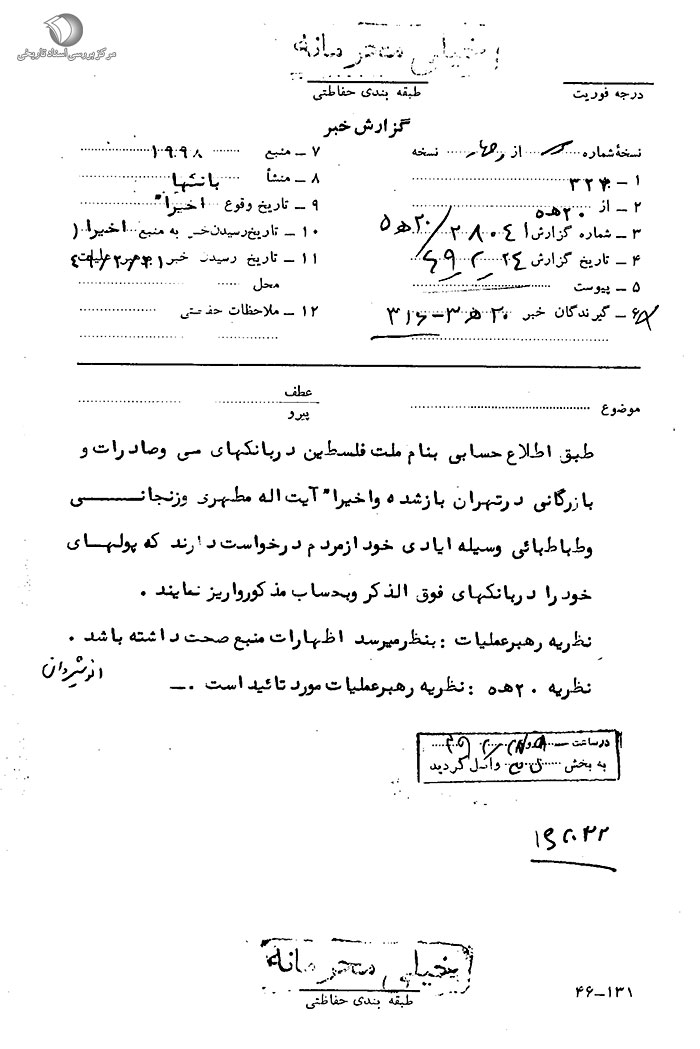 مرکز بررسی اسناد تاریخی
خیلی محرمانه
طبقه بندی حفاظتی
درجه فوریت
گزارش خبر
نسخهٔ شماره از نسخه
۱ – ۳۲۴
۲ – از ۲۰ﻫ۵
۳ – شماره گزارش
۴ – تاریخ گزارش
۵ – پیوست
۶ – گیرندگان خبر ۳۱۶
۷ – منبع ۱۹۹۸
۸ – منشأ بانکها
۹ – تاریخ وقوع اخیراً
۱۰ – تاریخ رسیدن خبر به منبع اخیراً
۱۱ – تاریخ رسیدن خبر به رهبر عملیات
محل
۱۲ – ملاحظات حفاظتی
موضوع
عطف
پیرو
طبق اطلاع حسابی بنام ملت فلسطین دربانکهای ملی وصادرات و
بازرگانی درتهران بازشده واخیراً آیت اله مطهری وزنجانی
وطباطبائی وسیله ایادی خود ازمردم درخواست دارند که پولهای
خود را دربانکهای فوق الذکر وبحساب مذکورواریز نمایند .
نظریه رهبرعملیات : بنظرمیرسد اظهارات منبع صحت داشته باشد .
انوشیروان
نظریه ۲۰ﻫ۵ : نظریه رهبرعملیات مورد تائید است .
در ساعت
به بخش واصل گردید
خیلی محرمانه
طبقه بندی حفاظتی
۴۶–۱۳۱